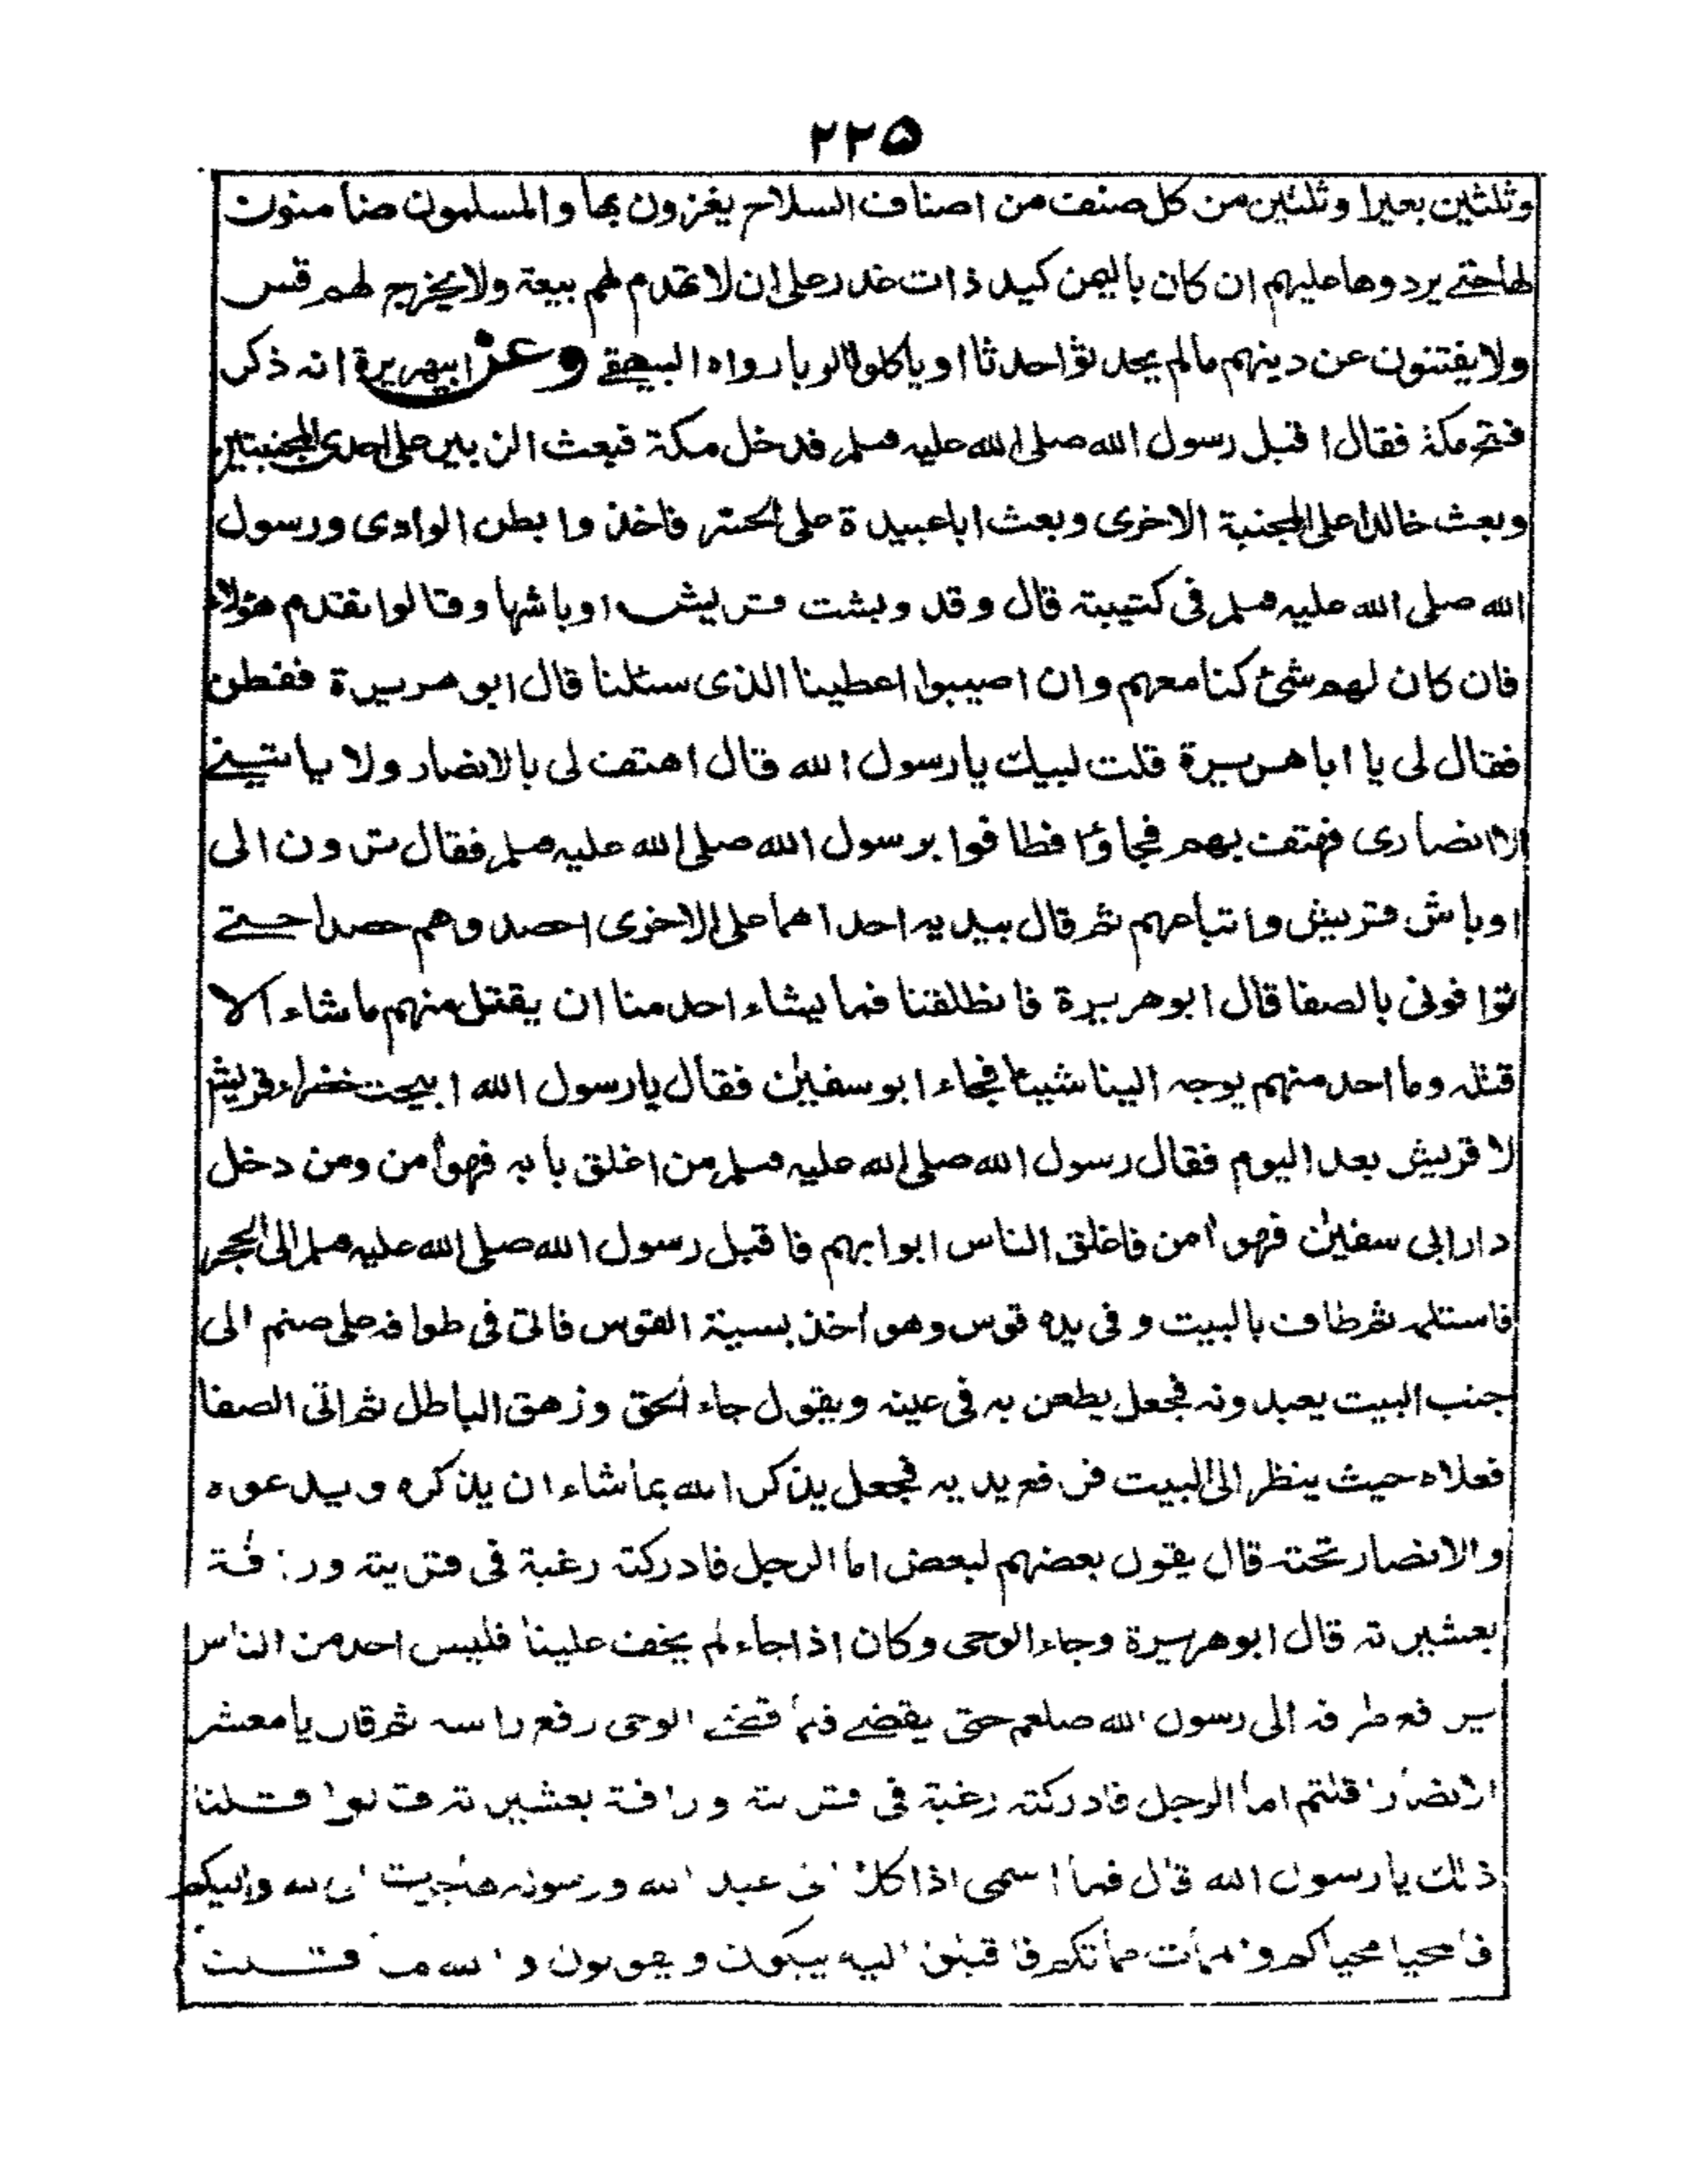 ٢٢٥
وثلثين بعيرا وثلثين من كل صنف من اصناف السلاح يغزون بها والمسلمون ضامنون
لها حتے يردوها عليهم ان كان باليمن كيد ذات غدر على ان لا تهدم لهم بيعة ولا يخرج لهم قس
ولا يفتنون عن دينهم مالم يحدثوا حدثا او ياكلوا الربا رواه البيهقے وعن ابيهريرة انه ذكر
فتح مكة فقال اقبل رسول الله صلى الله عليه وسلم فدخل مكة فبعث الزبير على احدى المجنبتين
وبعث خالدا على المجنبة الاخرى وبعث ابا عبيدة على الحسر فاخذوا بطن الوادى ورسول
الله صلى الله عليه وسلم فى كتيبته قال وقد وبشت قريش اوباشها وقالوا نقدم هؤلاء
فان كان لهم شئ كنا معهم وان اصيبوا اعطينا الذى سئلنا قال ابو هريرة ففطن
فقال لى يا ابا هريرة قلت لبيك يا رسول الله قال اهتف لى بالانصار ولا ياتينے
الا انصارى فهتف بهم فجاؤا فطافوا برسول الله صلى الله عليه وسلم فقال ترون الى
اوباش قريش واتباعهم ثم قال بيديه احداهما على الاخرى احصدوهم حصدا حتے
توافونى بالصفا قال ابو هريرة فانطلقنا فما يشاء احد منا ان يقتل منهم ما شاء الا
قتله وما احد منهم يوجه الينا شيئا فجاء ابو سفيٰن فقال يا رسول الله ابيحت خضراء قريش
لا قريش بعد اليوم فقال رسول الله صلى الله عليه وسلم من اغلق بابه فهو اٰمن ومن دخل
دار ابى سفيٰن فهو اٰمن فاغلق الناس ابوابهم فاقبل رسول الله صلى الله عليه وسلم الى الحجر
فاستلمه ثم طاف بالبيت وفى يده قوس وهو اٰخذ بسية القوس فاتى فى طوافه على صنم الى
جنب البيت يعبدونه فجعل يطعن به فى عينه ويقول جاء الحق وزهق الباطل ثم اتى الصفا
فعلاه حيث ينظر الى البيت فرفع يديه فجعل يذكر الله بما شاء ان يذكره ويدعوه
والانصار تحته قال يقول بعضهم لبعض اما الرجل فادركته رغبة فى قريته ورافة
بعشيرته قال ابو هريرة وجاء الوحى وكان اذا جاء لم يخف علينا فليس احد من الناس
يرفع طرفه الى رسول الله صلعم حتى يقضے فلما قضے الوحى رفع راسه ثم قال يا معشر
الانصار اقلتم اما الرجل فادركته رغبة فى قريته ورافة بعشيرته قالوا قلنا
ذلك يا رسول الله قال فما اسمى اذا كلا انى عبد الله ورسوله هاجرت الى الله واليكم
فالمحيا محياكم والممات مماتكم فاقبلوا اليه يبكون ويقولون والله ما قلنا